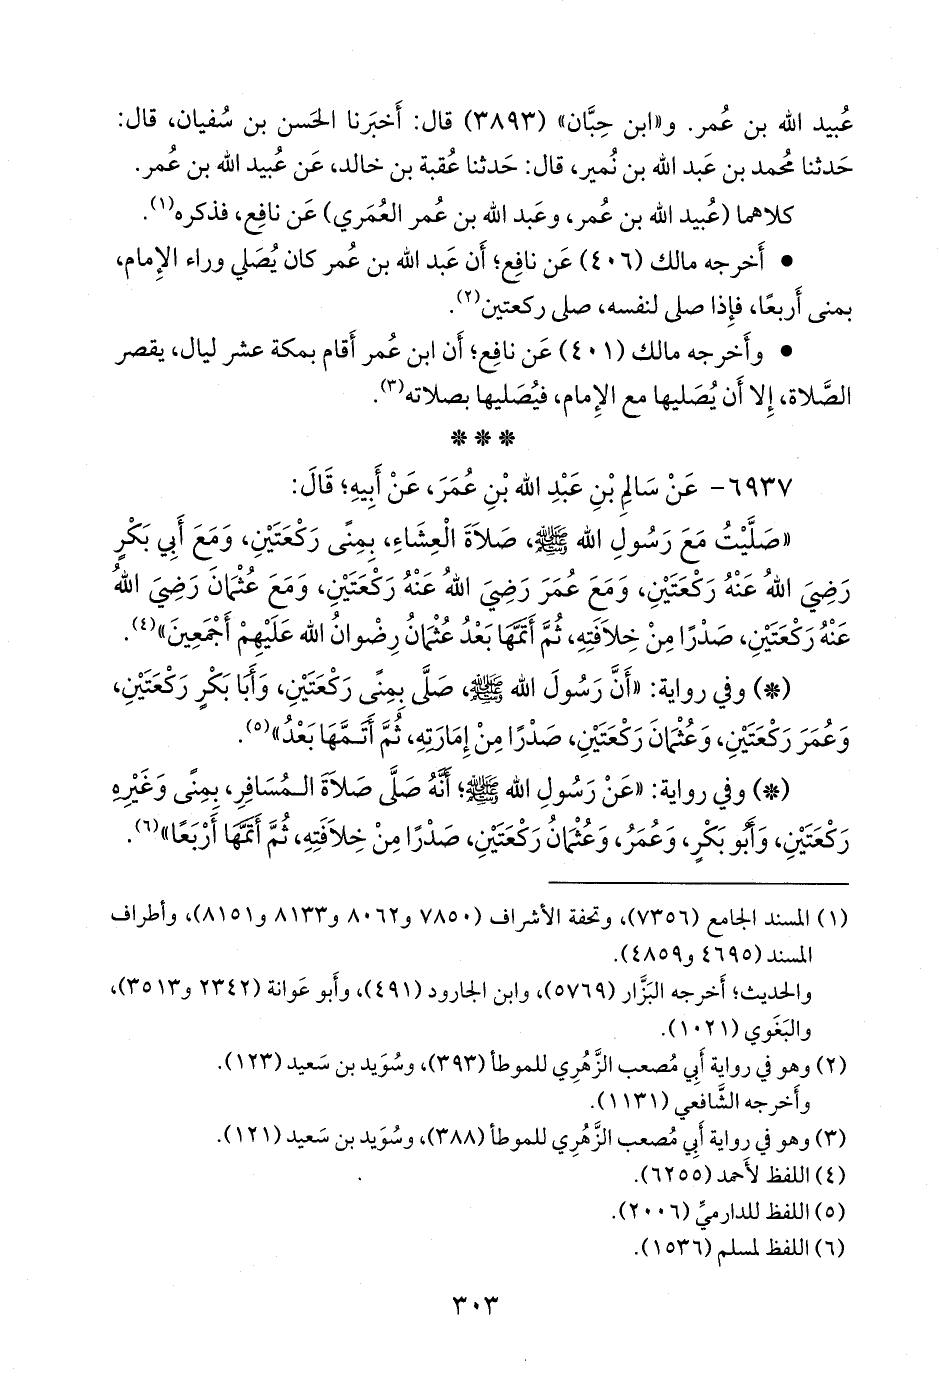 عُبيد الله بن عُمر. و«ابن حِبَّان» (٣٨٩٣) قال: أَخبَرنا الحَسن بن سُفيان، قال:
حَدثنا مُحمد بن عَبد الله بن نُمير، قال: حَدثنا عُقبة بن خالد، عَن عُبيد الله بن عُمر.
كلاهما (عُبيد الله بن عُمر، وعَبد الله بن عمر العُمَري) عَن نافِع، فذكره(١).
• أَخرجه مالك (٤٠٦) عَن نافِع؛ أَن عَبد الله بن عُمر كان يُصَلي وراء الإِمام،
بمنى أَربعًا، فإِذا صلى لنفسه، صلى ركعتين(٢).
• وأَخرجه مالك (٤٠١) عَن نافِع؛ أَن ابن عُمر أَقام بمكة عشر ليال، يقصر
الصَّلاة، إِلا أَن يُصَليها مع الإِمام، فيُصَليها بصلاته(٣).
***
٦٩٣٧- عَنْ سَالِمِ بْنِ عَبْدِ الله بْنِ عُمَرَ، عَنْ أَبِيهِ؛ قَالَ:
«صَلَّيْتُ مَعَ رَسُولِ الله ﷺ، صَلاَةَ الْعِشَاءِ، بِمِنًى رَكْعَتَيْنِ، وَمَعَ أَبِي بَكْرٍ
رَضِيَ اللهُ عَنْهُ رَكْعَتَيْنِ، وَمَعَ عُمَرَ رَضِيَ اللهُ عَنْهُ رَكْعَتَيْنِ، وَمَعَ عُثْمَانَ رَضِيَ اللهُ
عَنْهُ رَكْعَتَيْنِ، صَدْرًا مِنْ خِلاَفَتِهِ، ثُمَّ أَتَمَّهَا بَعْدُ عُثْمَانُ رِضْوانُ الله عَلَيْهِمْ أَجْمَعِينَ»(٤).
(*) وفي رواية: «أَنَّ رَسُولَ الله ﷺ، صَلَّى بِمِنًى رَكْعَتَيْنِ، وَأَبَا بَكْرٍ رَكْعَتَيْنِ،
وَعُمَرَ رَكْعَتَيْنِ، وَعُثْمَانَ رَكْعَتَيْنِ، صَدْرًا مِنْ إِمَارَتِهِ، ثُمَّ أَتَـمَّهَا بَعْدُ»(٥).
(*) وفي رواية: «عَنْ رَسُولِ الله ﷺ؛ أَنَّهُ صَلَّى صَلاَةَ الـمُسَافِرِ، بِمِنًى وَغَيْرِهِ
رَكْعَتَيْنِ، وَأَبُو بَكْرٍ، وَعُمَرُ، وَعُثْمَانُ رَكْعَتَيْنِ، صَدْرًا مِنْ خِلاَفَتِهِ، ثُمَّ أَتَمَّهَا أَرْبَعًا»(٦).
(١) المسند الجامع (٧٣٥٦)، وتحفة الأشراف (٧٨٥٠ و٨٠٦٢ و٨١٣٣ و٨١٥١)، وأطراف
المسند (٤٦٩٥ و٤٨٥٩).
والحديث؛ أخرجه البَزَّار (٥٧٦٩)، وابن الجارود (٤٩١)، وأبو عَوانة (٢٣٤٢ و٣٥١٣)،
والبَغَوي (١٠٢١).
(٢) وهو في رواية أَبي مُصعب الزُّهْرِي للموطأ (٣٩٣)، وسُوَيد بن سَعيد (١٢٣).
وأَخرجه الشَّافعي (١١٣١).
(٣) وهو في رواية أَبي مُصعب الزُّهْرِي للموطأ (٣٨٨)، وسُوَيد بن سَعيد (١٢١).
(٤) اللفظ لأحمد (٦٢٥٥).
(٥) اللفظ للدارميِّ (٢٠٠٦).
(٦) اللفظ لمسلم (١٥٣٦).
٣٠٣